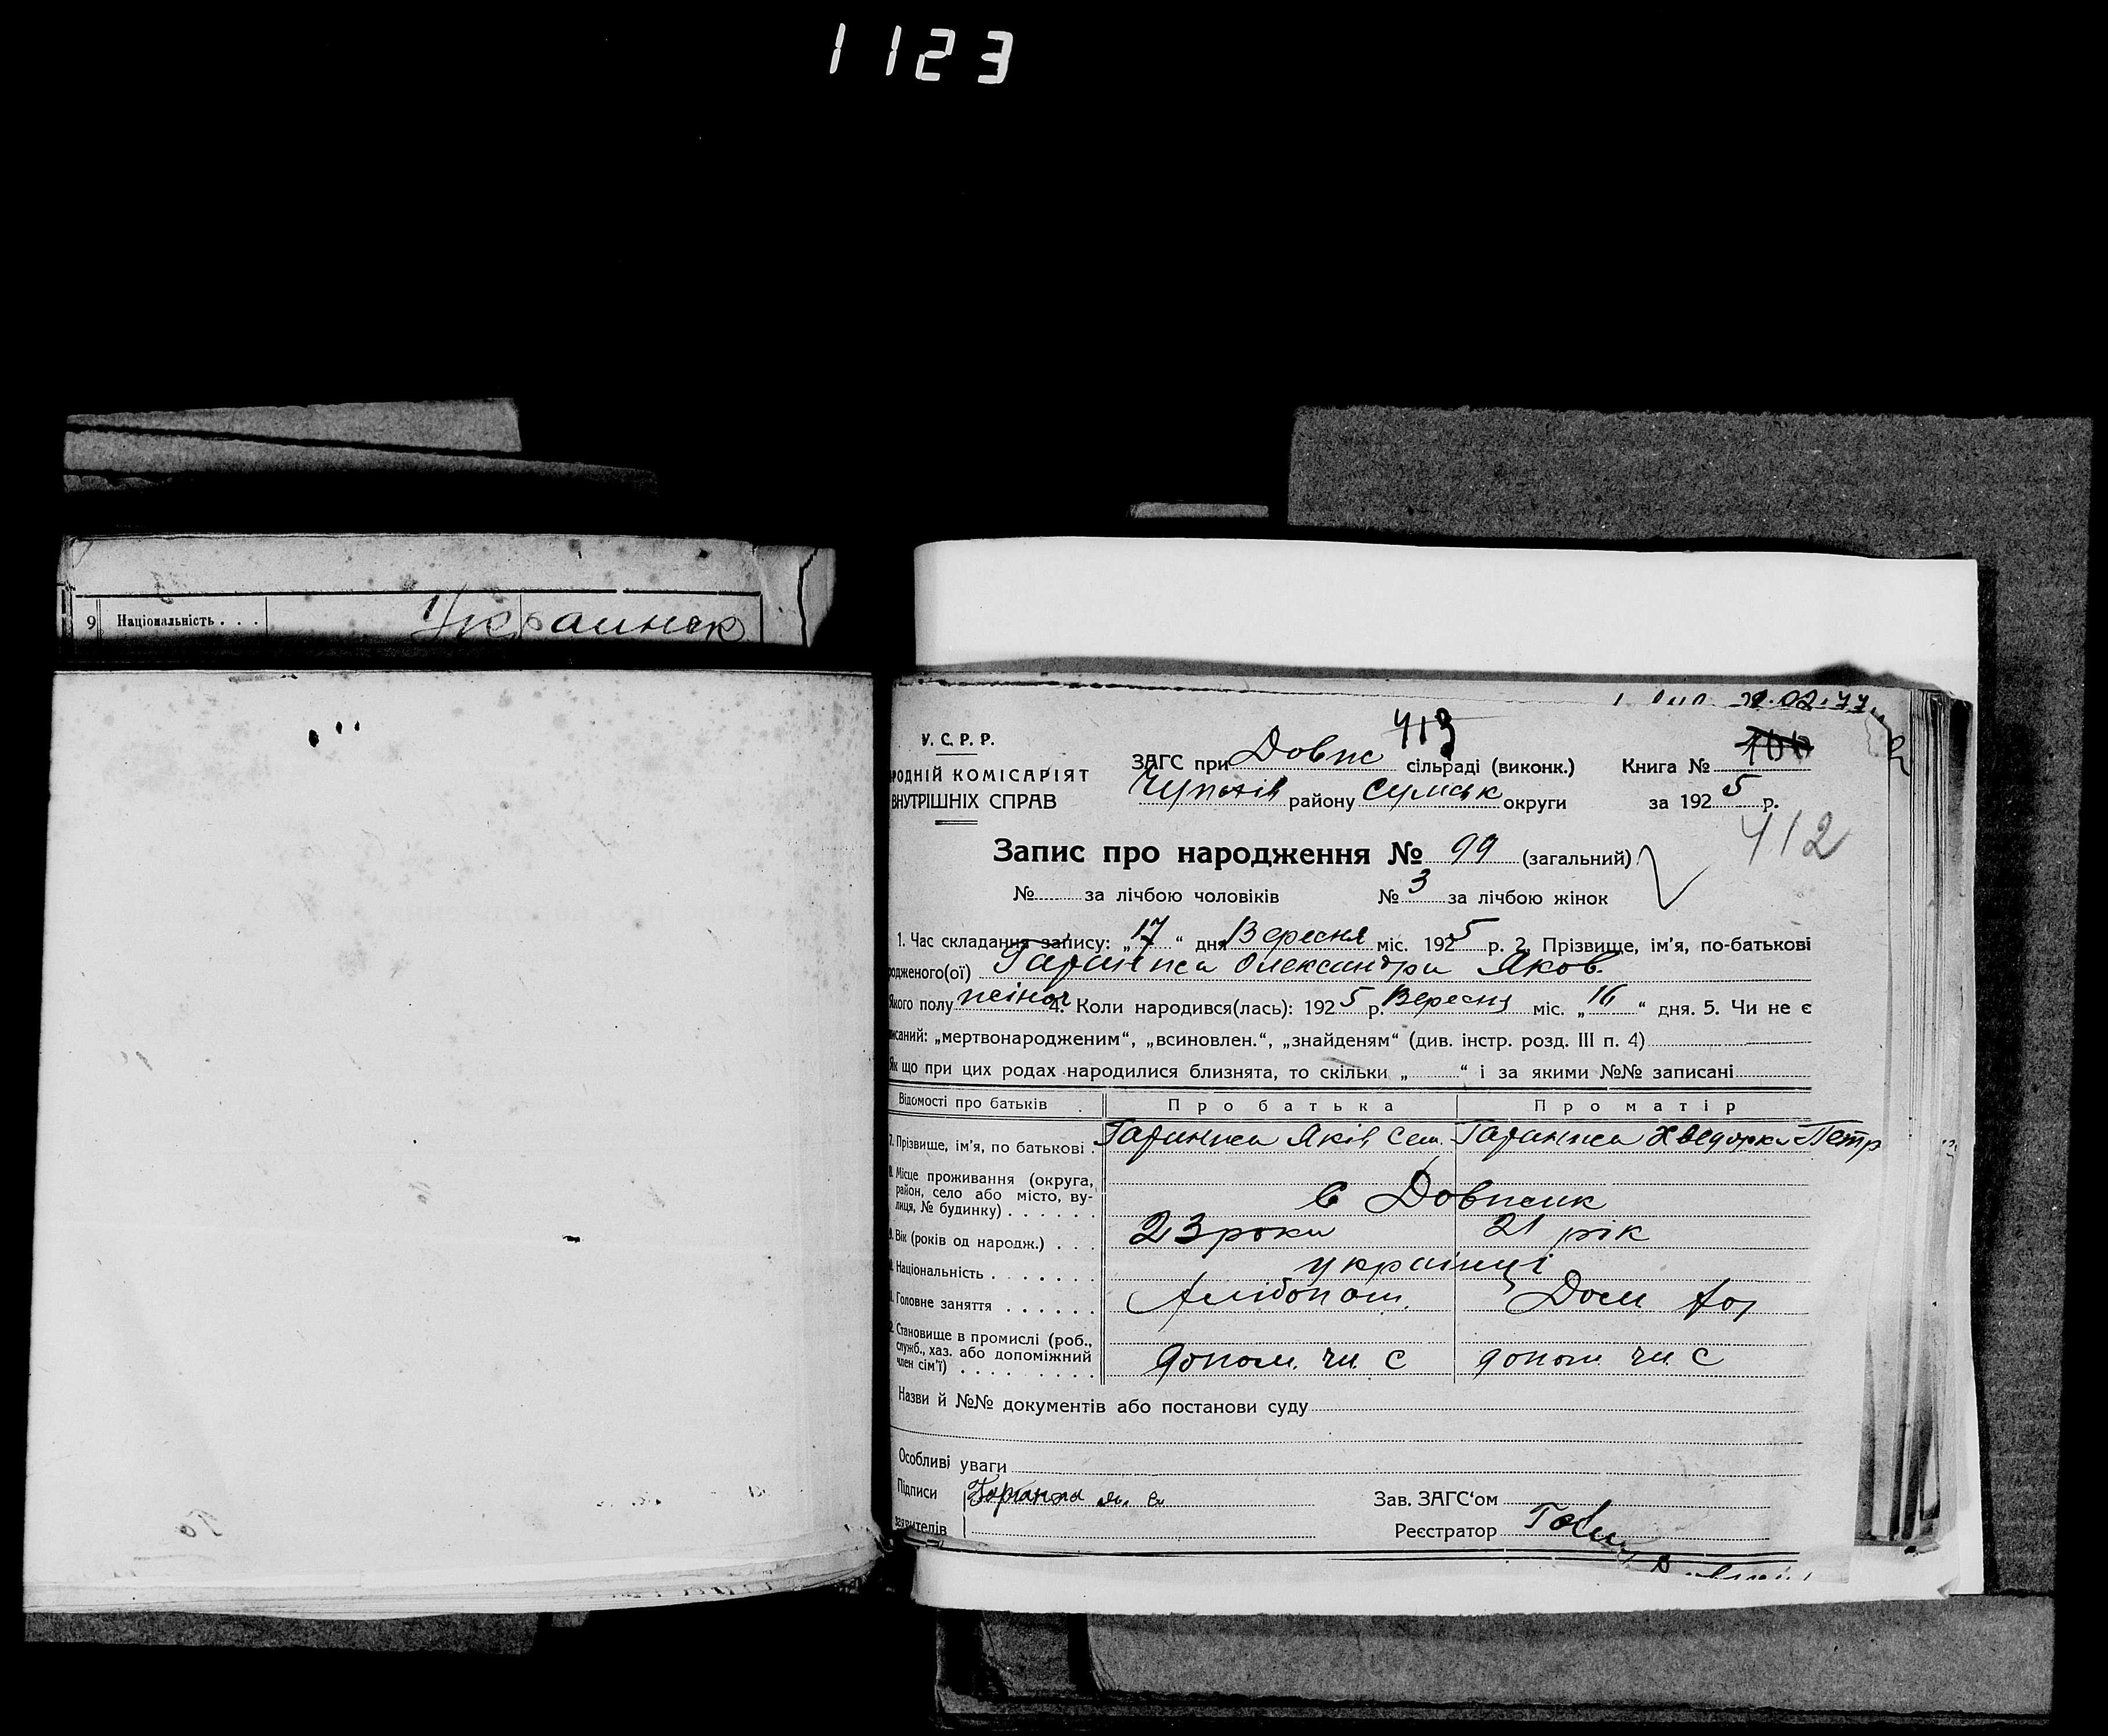 1123
9 Національність . . . Украинск
22.02.77
413
У. С. Р. Р.
РОДНІЙ КОМІСАРІЯТ
ВНУТРІШНІХ СПРАВ
ЗАГС при Довж сільраді (виконк.) Книга № 100
Чупахів району Сумськ округи за 1925 р.
412
Запис про народження № 99 (загальний)
№ за лічбою чоловіків № 3 за лічбою жінок
1. Час складання запису: „17“ дня Вересня міс. 1925 р. 2. Прізвище, ім'я, по-батькові
родженого(ої) Гаранжа Олександра Яков.
якого полу жіноч 4. Коли народився(лась): 1925 р. Вересня міс. „16“ дня. 5. Чи не є
писаний: „мертвонародженим“, „всиновлен.“, „знайденям“ (див. інстр. розд. III п. 4)
Як що при цих родах народилися близнята, то скільки „ “ і за якими №№ записані
Відомості про батьків . Про батька Про матір
7. Прізвище, ім'я, по батькові . Гаранжа Яків Сем. Гаранжа Хведорка Петр
8. Місце проживання (округа,
район, село або місто, ву-
лиця, № будинку) . . . . . . С Довжик
9. Вік (років од народж.) . . . 23 роки 21 рік
Національність . . . . . . . українці
Головне заняття . . . . . . Хлібопаш. Дом хоз
Становище в промислі (роб.,
служб., хаз. або допоміжний
член сім'ї) . . . . . . . . . допом. чл. С допом чл. С
Назви й №№ документів або постанови суду
Особливі уваги
Підписи Гаранжа Як. Зав. ЗАГС'ом
заявителів Реєстратор